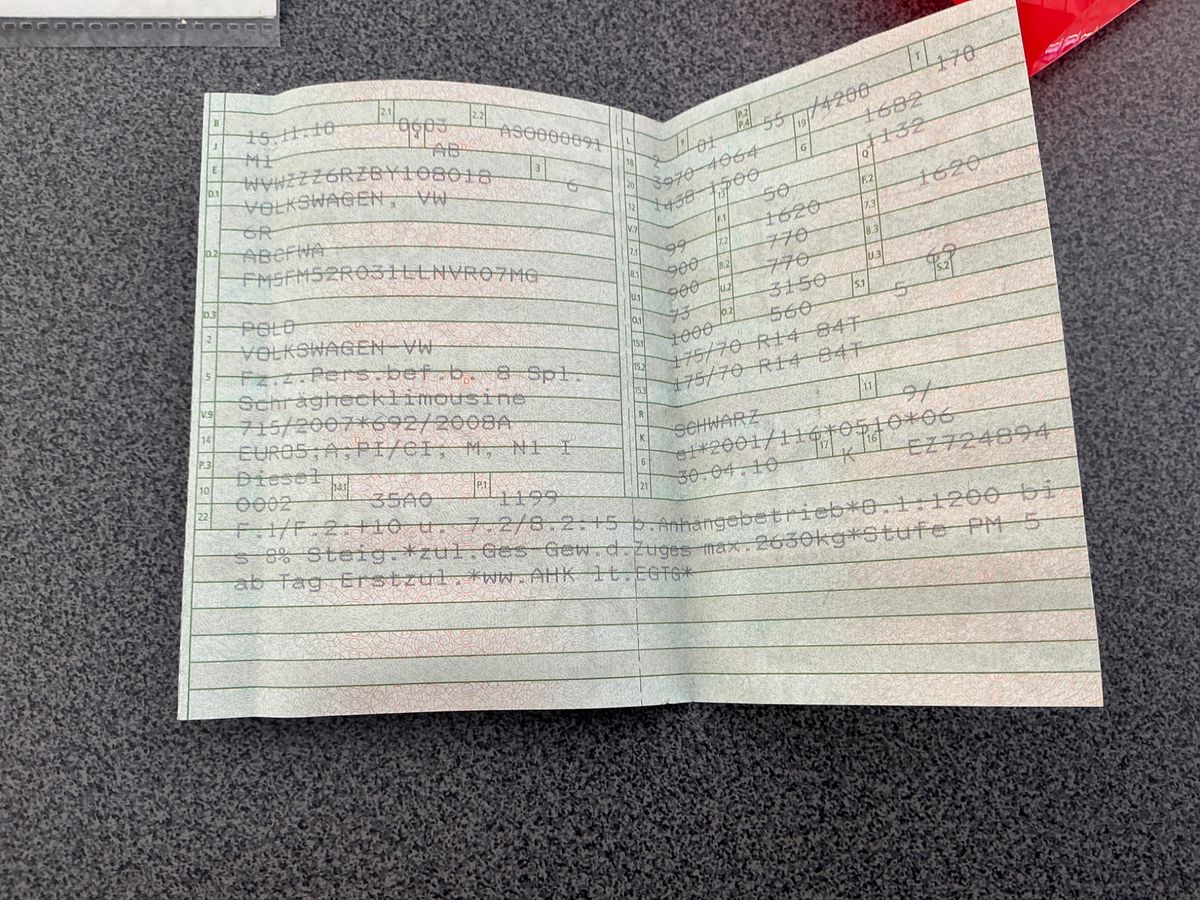 B 15.11.10 2.1 0603 2.2 ASO000091
J M1 4 AB
E WVWZZZ6RZBY108018 3 6
D.1 VOLKSWAGEN, VW
6R
D.2 ABCFWA
FM5FM52R031LLNVR07MG
D.3 POLO
2 VOLKSWAGEN VW
5 Fz.z.Pers.bef.b. 8 Spl.
Schräghecklimousine
V.9 715/2007*692/2008A
14 EURO5;A,PI/CI, M, N1 I
P.3 Diesel
10 0002 14.1 35A0 P.1 1199
22 F.1/F.2:+10 u. 7.2/8.2:+5 b.Anhängebetrieb*O.1:1200 bi
s 8% Steig.*zul.Ges-Gew.d.Zuges max.2630kg*Stufe PM 5
ab Tag Erstzul.*ww.AHK lt.EGTG*
L 2 9 01 P.2 P.4 55 /4200 T 170
18 3970-4064 19 1682
20 1438-1500 G 1132
12 13 50 Q
V.7 99 F.1 1620 F.2 1620
7.1 900 7.2 770 7.3
8.1 900 8.2 770 8.3
U.1 73 U.2 3150 U.3 69
O.1 1000 O.2 560 S.1 5 S.2
15.1 175/70 R14 84T
15.2 175/70 R14 84T
15.3
R SCHWARZ 11 9/-
K e1*2001/116*0510*06
6 30.04.10 17 K 16 EZ724894
21